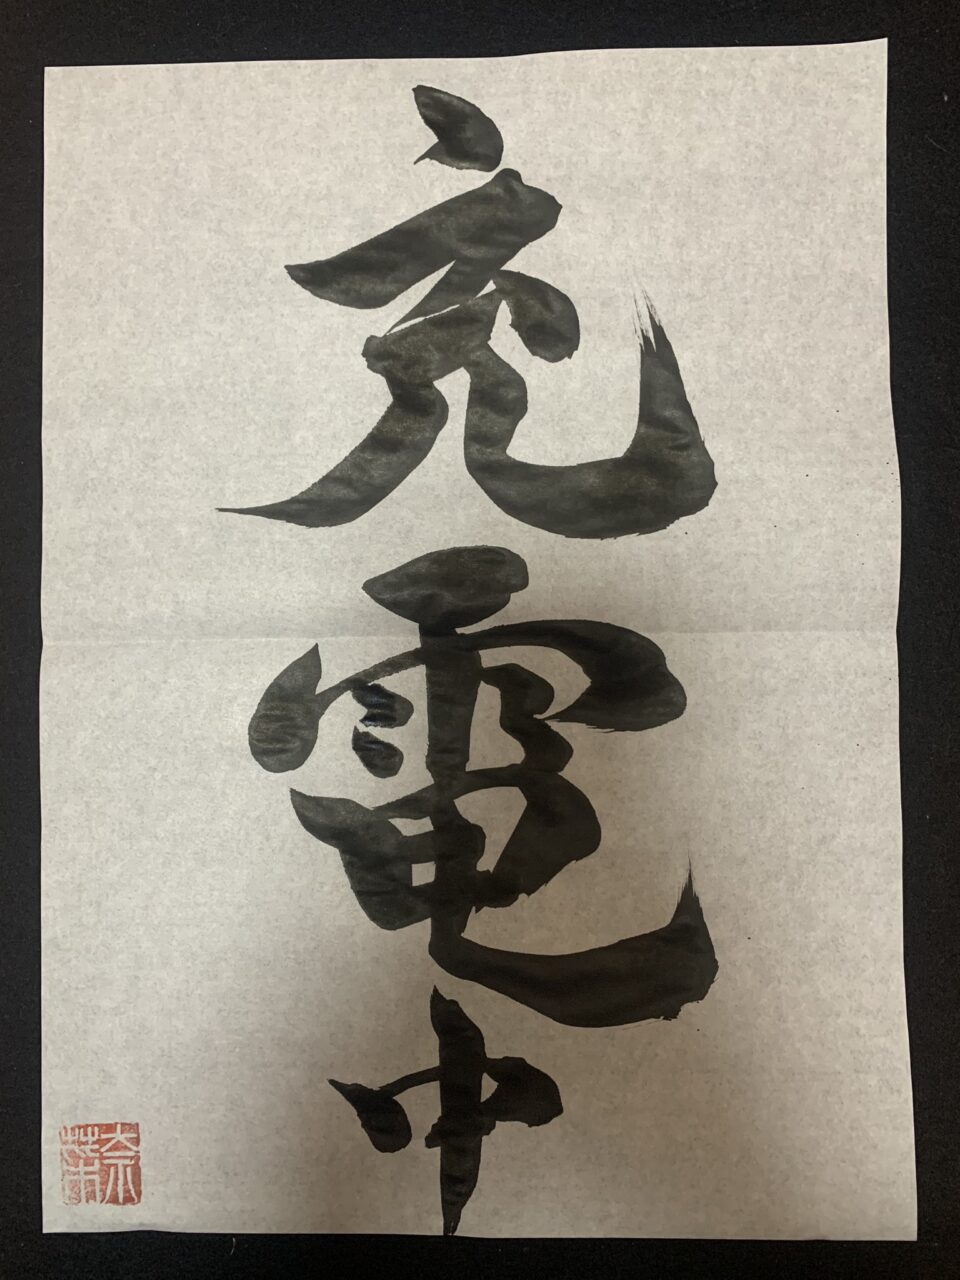 充電中
奈菜